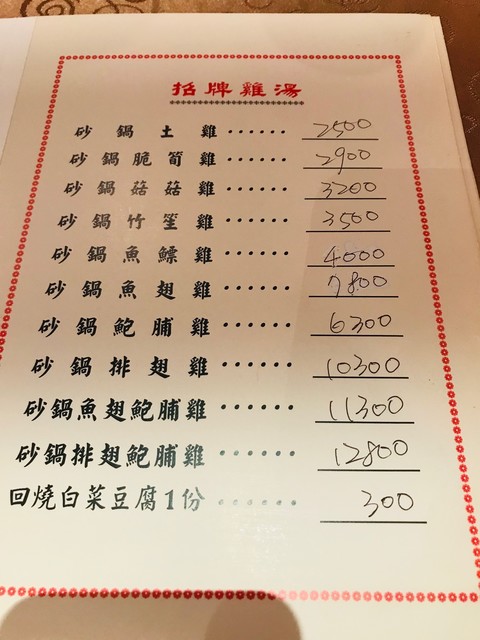 招牌雞湯
砂鍋土雞······ 2500
砂鍋脆筍雞······ 2900
砂鍋菇菇雞······ 3200
砂鍋竹笙雞······ 3500
砂鍋魚鰾雞······ 4000
砂鍋魚翅雞······ 7800
砂鍋鮑脯雞······ 6300
砂鍋排翅雞······ 10300
砂鍋魚翅鮑脯雞······ 11300
砂鍋排翅鮑脯雞······ 12800
回燒白菜豆腐1份······ 300